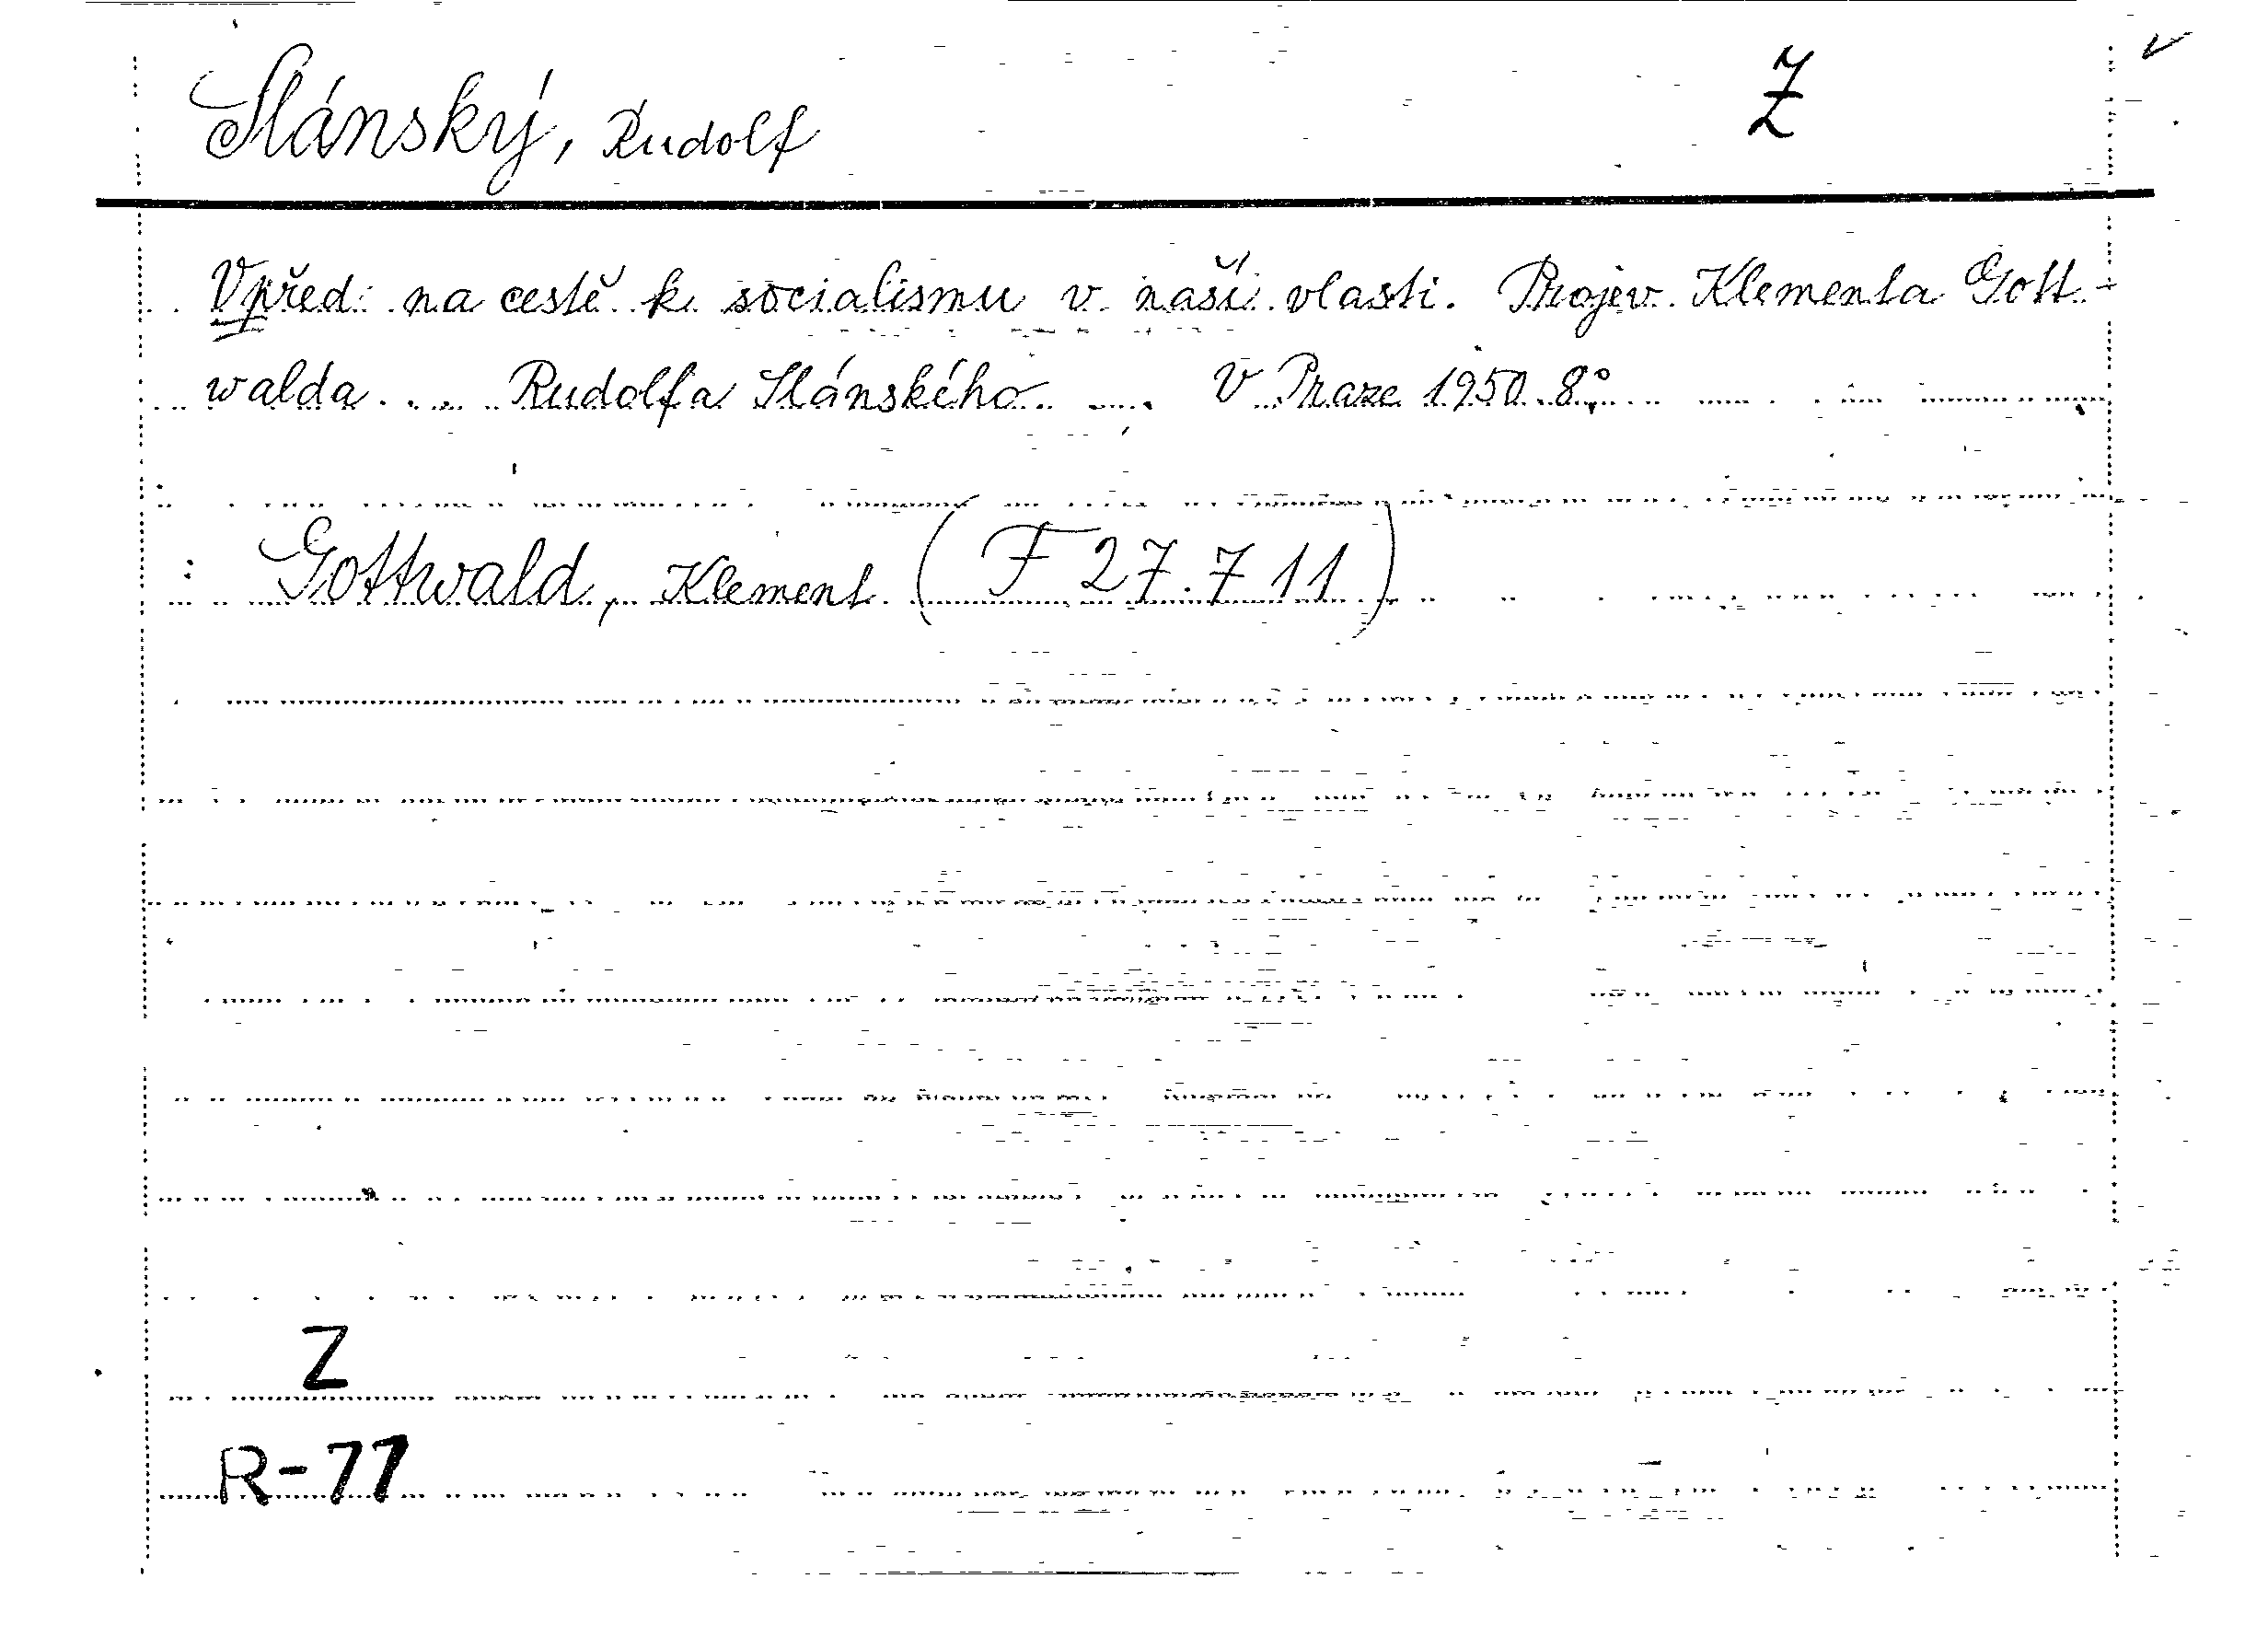 Slánský, Rudolf Z
Vpřed na cestě k socialismu v naší vlasti. Projev Klementa Gott-
walda ... Rudolfa Slánského .... V Praze 1950. 8°.
Gottwald, Klement (F 27.711)
Z
R-77